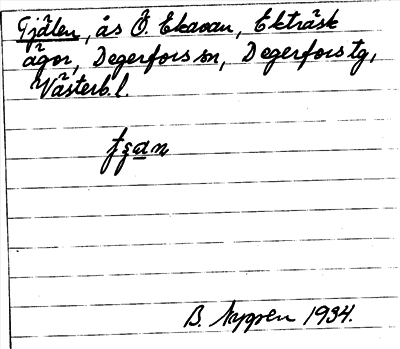 Tjälen, ås Ö. Ekavan, Ekträsk
ägor, Degerfors sn, Degerfors tg,
Västerb. l.
B. Nygren 1934.